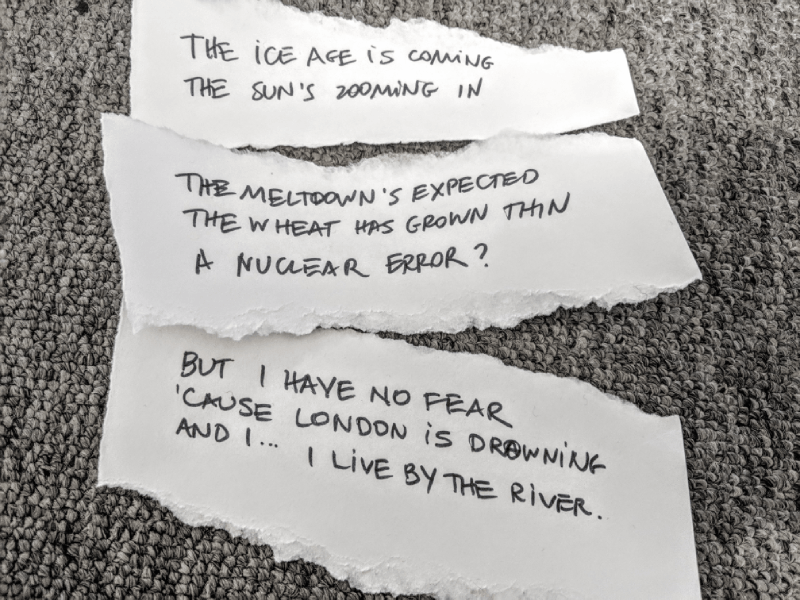 THE ICE AGE IS COMING
THE SUN'S ZOOMING IN
THE MELTDOWN'S EXPECTED
THE WHEAT HAS GROWN THIN
A NUCLEAR ERROR?
BUT I HAVE NO FEAR
'CAUSE LONDON IS DROWNING
AND I... I LIVE BY THE RIVER.